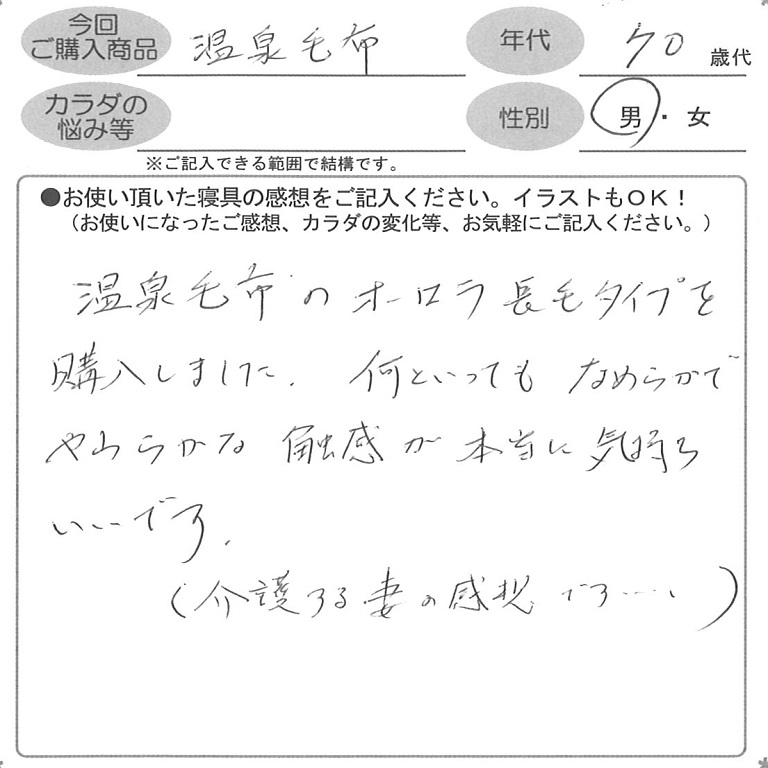 今回
ご購入商品
温泉毛布
年代
70 歳代
カラダの
悩み等
性別
男・女
※ご記入できる範囲で結構です。
●お使い頂いた寝具の感想をご記入ください。イラストもOK!
(お使いになったご感想、カラダの変化等、お気軽にご記入ください。)
温泉毛布のオーロラ長毛タイプを
購入しました. 何といっても なめらかで
やわらかな 触感が 本当に 気持ち
いいです.
(介護する妻の感想です……)